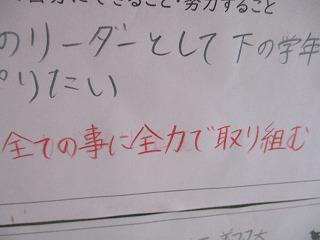 自分にできること・努力すること
のリーダーとして下の学年
りたい
全ての事に全力で取り組む